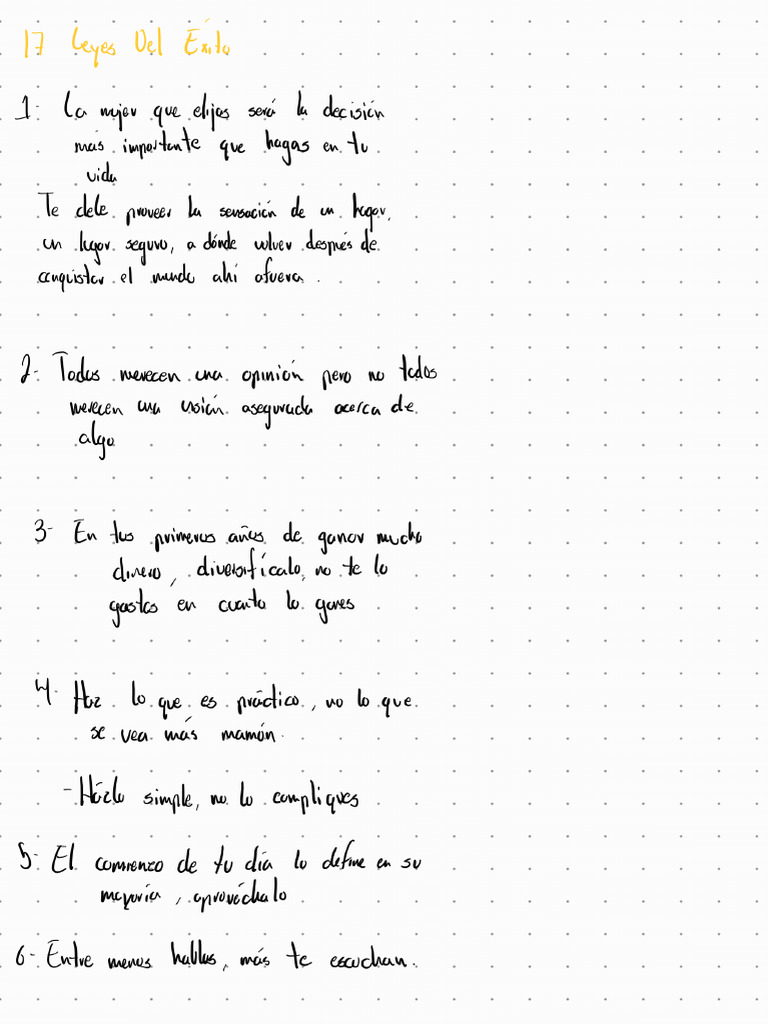 17 Leyes Del Éxito
1- La mujer que elijas será la decisión
más importante que hagas en tu
vida
Te debe proveer la sensación de un hogar,
un lugar seguro, a dónde volver después de
conquistar el mundo ahí afuera.
2- Todos merecen una opinión pero no todos
merecen una visión asegurada acerca de
algo
3- En tus primeros años de ganar mucho
dinero, diversifícalo, no te lo
gastes en cuanto lo ganes
4- Haz lo que es práctico, no lo que
se vea más mamón.
- Házlo simple, no lo compliques
5- El comienzo de tu día lo define en su
mayoría, aprovéchalo
6- Entre menos hablas, más te escuchan.